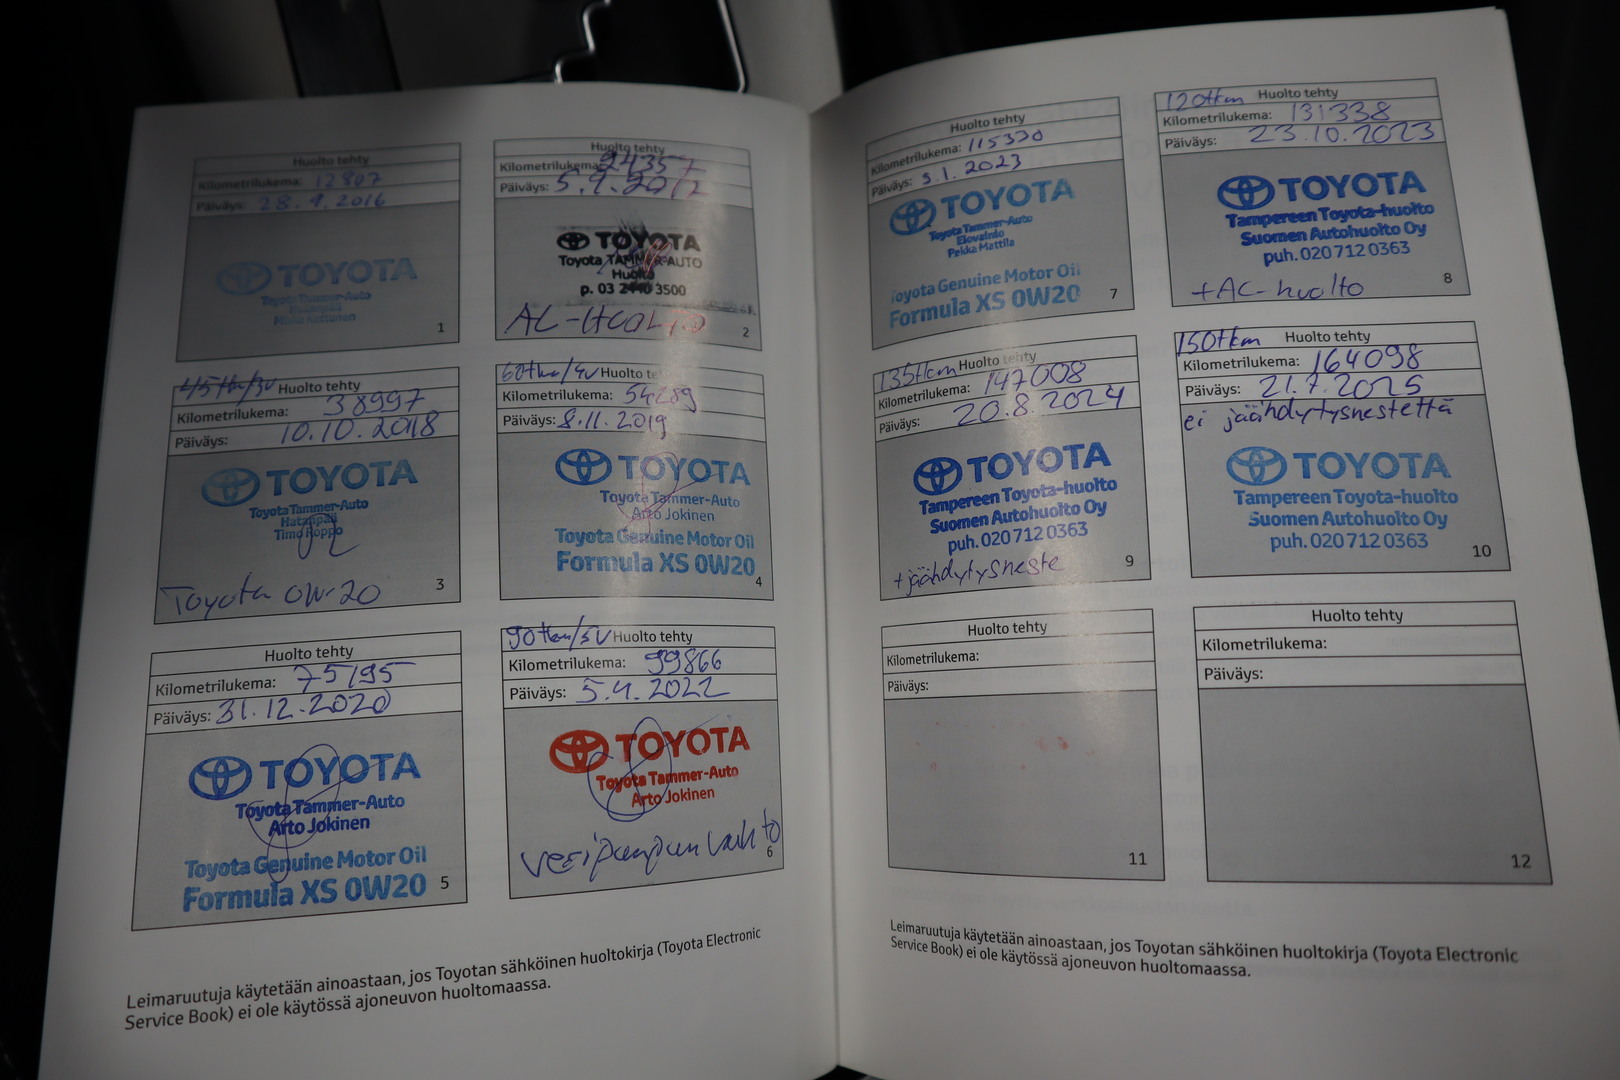 Huolto tehty
Kilometrilukema: 12807
Päiväys: 28.9.2016
TOYOTA
Toyota Tammer-Auto
Hatanpää
1
Huolto tehty
Kilometrilukema: 24357
Päiväys: 5.9.2017
TOYOTA
Toyota TAMMER-AUTO
Huolto
p. 03 2440 3500
AC-HUOLTO
2
45tkm/3v Huolto tehty
Kilometrilukema: 38997
Päiväys: 10.10.2018
TOYOTA
Toyota Tammer-Auto
Hatanpää
Timo Roppo
Toyota 0W-20
3
60tkm/4v Huolto te
Kilometrilukema: 54289
Päiväys: 8.11.2019
TOYOTA
Toyota Tammer-Auto
Arto Jokinen
Toyota Genuine Motor Oil
Formula XS 0W20
4
Huolto tehty
Kilometrilukema: 75195
Päiväys: 31.12.2020
TOYOTA
Toyota Tammer-Auto
Arto Jokinen
Toyota Genuine Motor Oil
Formula XS 0W20
5
90tkm/5v Huolto tehty
Kilometrilukema: 99866
Päiväys: 5.4.2022
TOYOTA
Toyota Tammer-Auto
Arto Jokinen
vesipumpun vaihto
6
Leimaruutuja käytetään ainoastaan, jos Toyotan sähköinen huoltokirja (Toyota Electronic
Service Book) ei ole käytössä ajoneuvon huoltomaassa.
Huolto tehty
Kilometrilukema: 115330
Päiväys: 5.1.2023
TOYOTA
Toyota Tammer-Auto
Elovainio
Pekka Mattila
Toyota Genuine Motor Oil
Formula XS 0W20
7
120tkm Huolto tehty
Kilometrilukema: 131338
Päiväys: 23.10.2023
TOYOTA
Tampereen Toyota-huolto
Suomen Autohuolto Oy
puh. 020 712 0363
+AC-huolto
8
135tkm Huolto tehty
Kilometrilukema: 147008
Päiväys: 20.8.2024
TOYOTA
Tampereen Toyota-huolto
Suomen Autohuolto Oy
puh. 020 712 0363
+jäähdytysneste
9
150tkm Huolto tehty
Kilometrilukema: 164098
Päiväys: 21.7.2025
ei jäähdytysnestettä
TOYOTA
Tampereen Toyota-huolto
Suomen Autohuolto Oy
puh. 020 712 0363
10
Huolto tehty
Kilometrilukema:
Päiväys:
11
Huolto tehty
Kilometrilukema:
Päiväys:
12
Leimaruutuja käytetään ainoastaan, jos Toyotan sähköinen huoltokirja (Toyota Electronic
Service Book) ei ole käytössä ajoneuvon huoltomaassa.